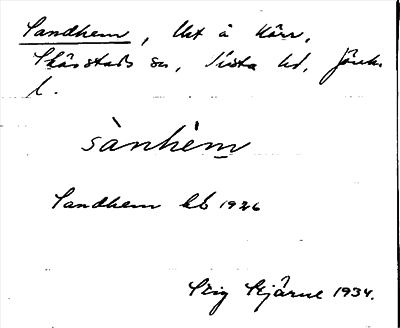 Sandhem, Ut å Kärr,
Skärstads sn, Vista hd, Jönk.
l.
sànhèm
Sandhem kb 1926
Stig Stjärne 1934.